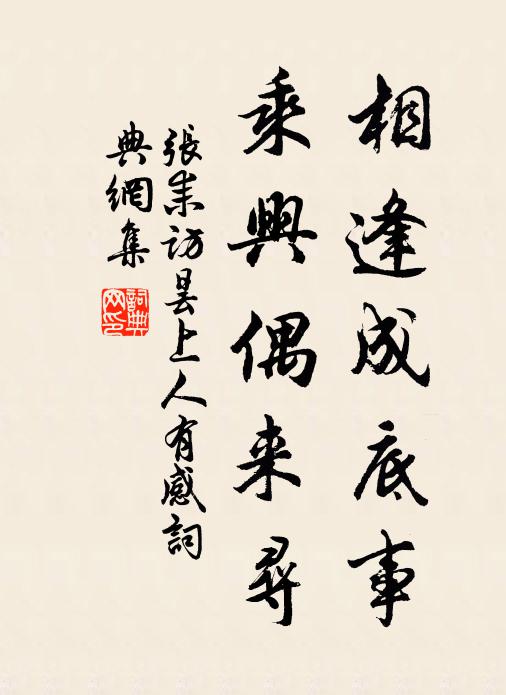 相逢成底事
乘興偶来尋
張耒訪曇上人有感詞
典網集
詞典網印